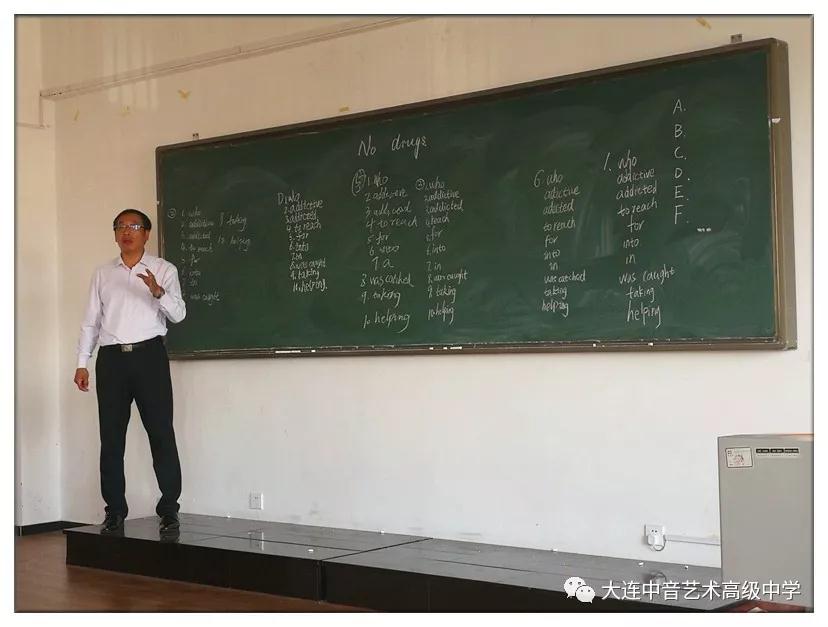 No drugs
1. who
2. addictive
3. addicted
4. to reach
5. for
6. into
7. in
8. was caught
9 taking
10 helping
1. who
2. addictive
3. addicted
4. to reach
5. for
6. into
7. in
8. was caught
9. taking
10. helping.
1. who
2. addictive
4 to reach
5 for
6 into
7 a
8 was catched
9. taking
10. helping
who
2. addictive
3. addicted
4. reach
5. for
6. into
7. in
8. was caught
9. taking
10. helping
6. who
adictive
adicted
to reach
for
into
in
was catched
taking
helping
1. who
addictive
addicted
to reach
for
into
in
was caught
taking
helping
A.
B.
C.
D.
E.
F.
大连中音艺术高级中学